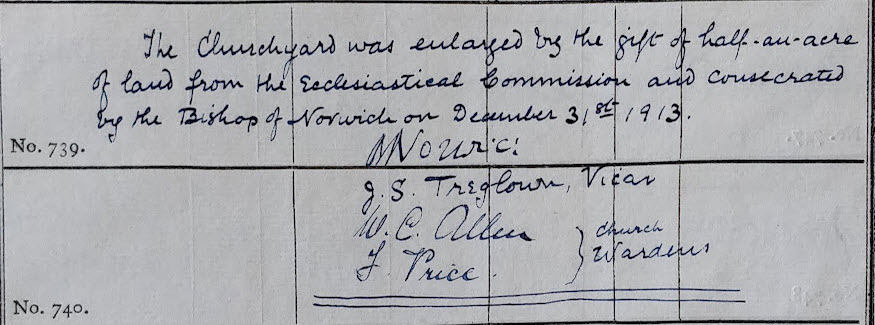 The Churchyard was enlarged by the gift of half-an-acre
of land from the Ecclesiastical Commission and consecrated
by the Bishop of Norwich on December 31st 1913.
No. 739.
J. S. Treglown, Vicar
W. C. Allen
F. Price.
Church
Wardens
No. 740.